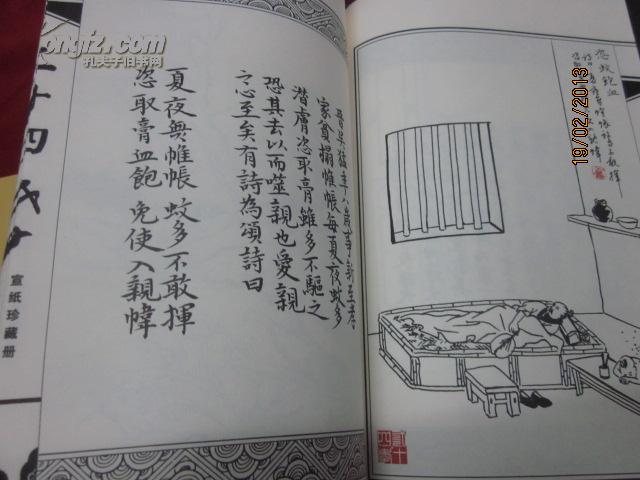 恣蚊飽血
晉吳猛年八歲事親至孝
家貧榻帷帳每夏夜蚊多
潛膚恣取膏雖多不驅之
恐其去以而噬親也愛親
之心至矣有詩為頌詩曰
夏夜無帷帳 蚊多不敢揮
恣取膏血飽 免使入親幃
十四
宣紙珍藏册
孔夫子旧书网
19/02/2013